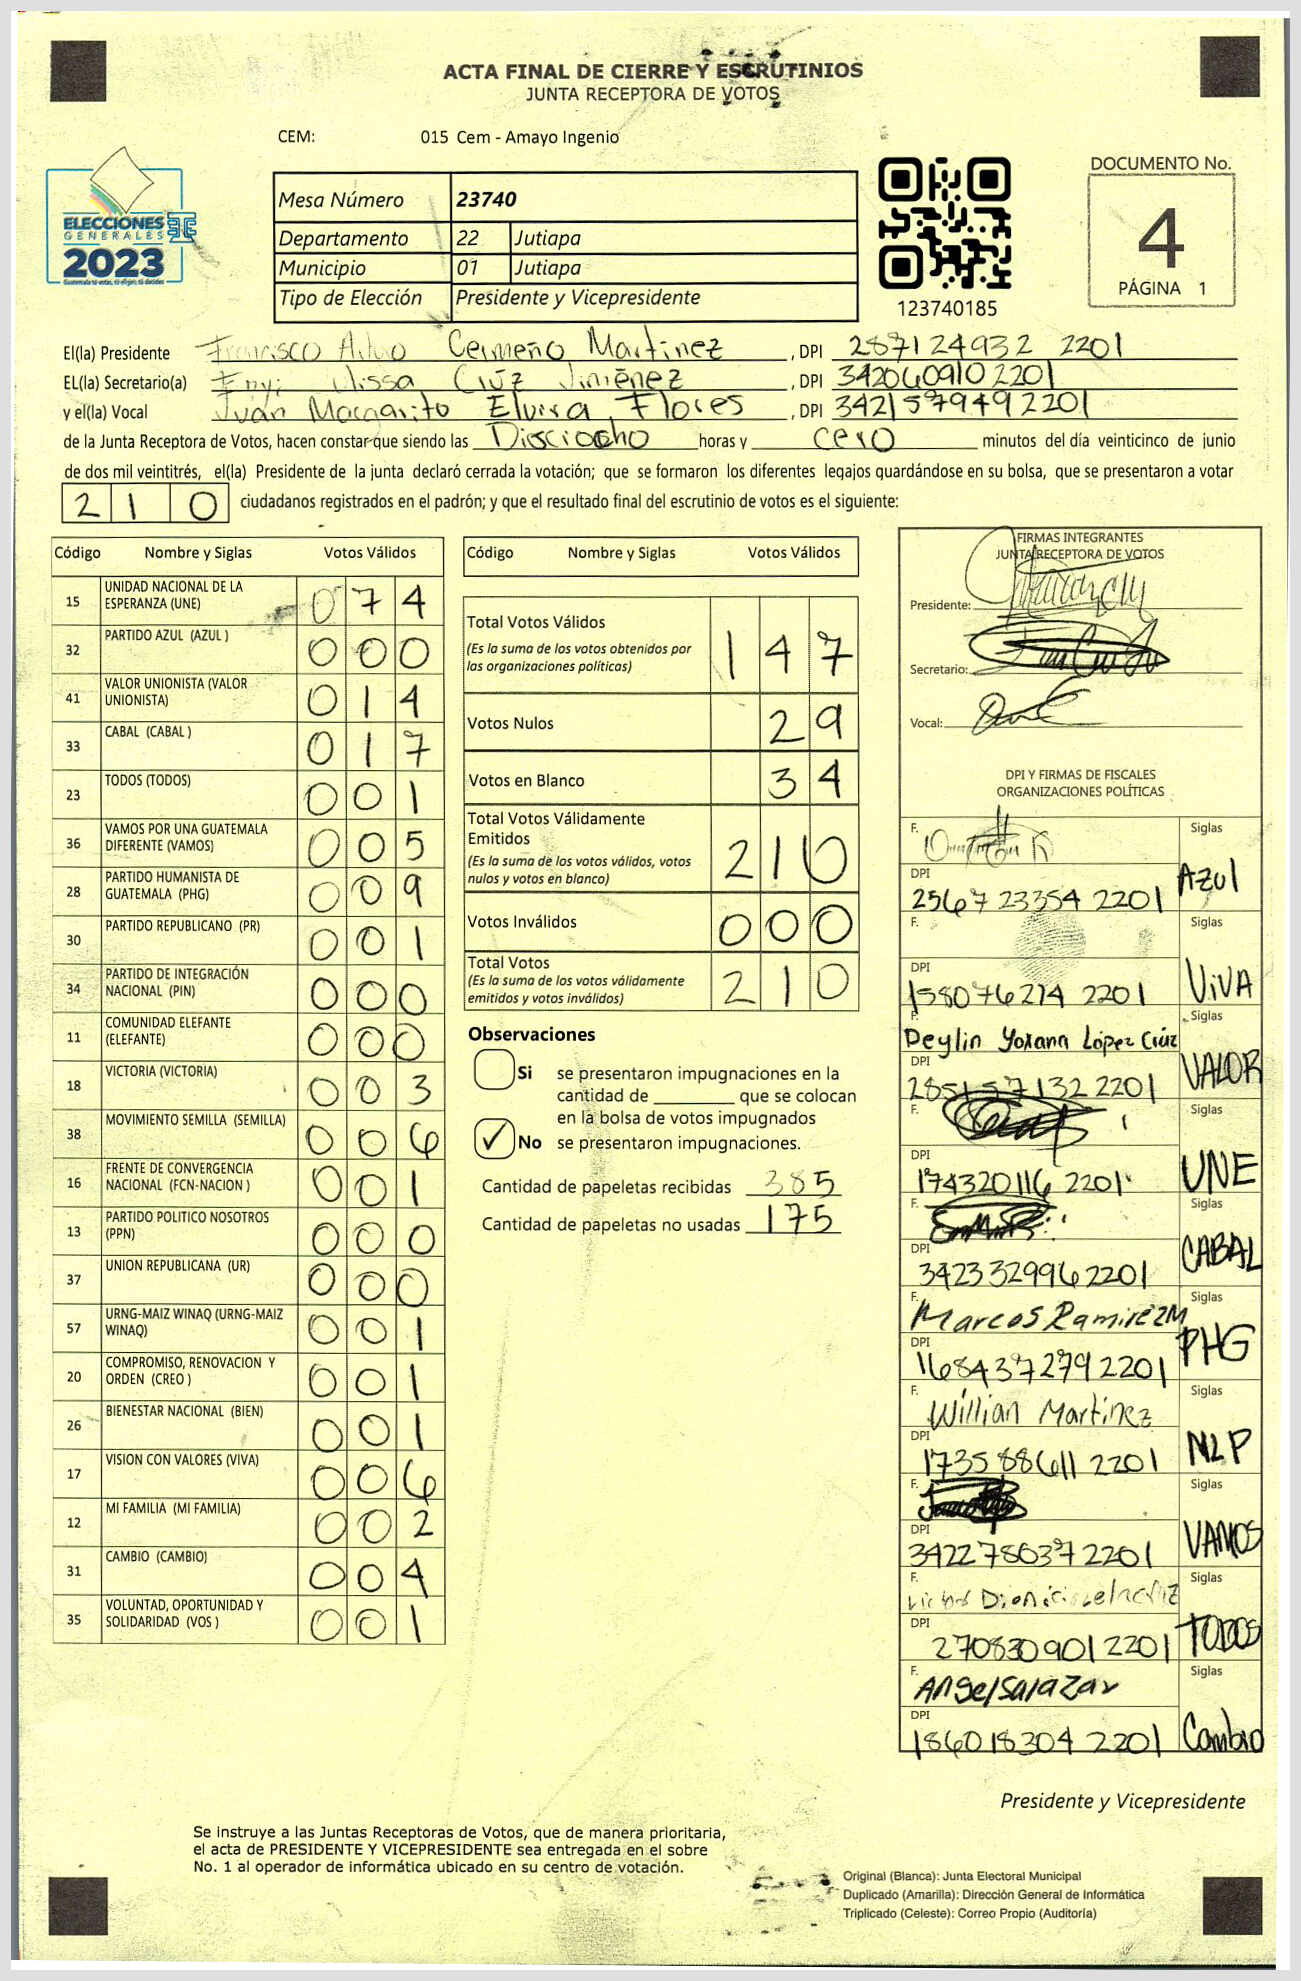 ACTA FINAL DE CIERRE Y ESCRUTINIOS
JUNTA RECEPTORA DE VOTOS
CEM: 015 Cem - Amayo Ingenio
ELECCIONES
GENERALES
2023
Mesa Número 23740
Departamento 22 Jutiapa
Municipio 01 Jutiapa
Tipo de Elección Presidente y Vicepresidente
123740185
DOCUMENTO No.
4
PÁGINA 1
El(la) Presidente Francisco Cermeño Martinez , DPI 287124932 2201
EL(la) Secretario(a) Cruz Jiménez , DPI 342060910 2201
y el(la) Vocal Juan Margarito Elvira Flores , DPI 342157949 2201
de la Junta Receptora de Votos, hacen constar que siendo las Diesciocho horas y cero minutos del día veinticinco de junio
de dos mil veintitrés, el(la) Presidente de la junta declaró cerrada la votación; que se formaron los diferentes legajos quardándose en su bolsa, que se presentaron a votar
210 ciudadanos registrados en el padrón; y que el resultado final del escrutinio de votos es el siguiente:
Código Nombre y Siglas Votos Válidos
15 UNIDAD NACIONAL DE LA ESPERANZA (UNE) 074
32 PARTIDO AZUL (AZUL ) 000
41 VALOR UNIONISTA (VALOR UNIONISTA) 014
33 CABAL (CABAL ) 017
23 TODOS (TODOS) 001
36 VAMOS POR UNA GUATEMALA DIFERENTE (VAMOS) 005
28 PARTIDO HUMANISTA DE GUATEMALA (PHG) 009
30 PARTIDO REPUBLICANO (PR) 001
34 PARTIDO DE INTEGRACIÓN NACIONAL (PIN) 000
11 COMUNIDAD ELEFANTE (ELEFANTE) 000
18 VICTORIA (VICTORIA) 003
38 MOVIMIENTO SEMILLA (SEMILLA) 006
16 FRENTE DE CONVERGENCIA NACIONAL (FCN-NACION ) 001
13 PARTIDO POLITICO NOSOTROS (PPN) 000
37 UNION REPUBLICANA (UR) 000
57 URNG-MAIZ WINAQ (URNG-MAIZ WINAQ) 001
20 COMPROMISO, RENOVACION Y ORDEN (CREO ) 001
26 BIENESTAR NACIONAL (BIEN) 001
17 VISION CON VALORES (VIVA) 006
12 MI FAMILIA (MI FAMILIA) 002
31 CAMBIO (CAMBIO) 004
35 VOLUNTAD, OPORTUNIDAD Y SOLIDARIDAD (VOS ) 001
Código Nombre y Siglas Votos Válidos
Total Votos Válidos 147
(Es la suma de los votos obtenidos por
las organizaciones políticas)
Votos Nulos 29
Votos en Blanco 34
Total Votos Válidamente
Emitidos 210
(Es la suma de los votos válidos, votos
nulos y votos en blanco)
Votos Inválidos 000
Total Votos 210
(Es la suma de los votos válidamente
emitidos y votos inválidos)
Observaciones
Si se presentaron impugnaciones en la
cantidad de ________ que se colocan
en la bolsa de votos impugnados
✓ No se presentaron impugnaciones.
Cantidad de papeletas recibidas 385
Cantidad de papeletas no usadas 175
FIRMAS INTEGRANTES
JUNTA RECEPTORA DE VOTOS
Presidente:
Secretario:
Vocal:
DPI Y FIRMAS DE FISCALES
ORGANIZACIONES POLÍTICAS
F. Siglas
DPI 2567 23354 2201 Azul
F. Siglas
DPI 158076214 2201 ViVA
F. Deylin Yoxana López Crúz Siglas
DPI 285157132 2201 VALOR
F. Siglas
DPI 174320116 2201 UNE
F. Siglas
DPI 342332996 2201 CABAL
F. Marcos Ramirez M Siglas
DPI 168437279 2201 PHG
F. Willian Martínez Siglas
DPI 173588611 2201 NLP
F. Siglas
DPI 342278637 2201 VAMOS
F. Siglas
DPI 270830901 2201 TODOS
F. Angel Salazar Siglas
DPI 186018304 2201 Cambio
Presidente y Vicepresidente
Se instruye a las Juntas Receptoras de Votos, que de manera prioritaria,
el acta de PRESIDENTE Y VICEPRESIDENTE sea entregada en el sobre
No. 1 al operador de informática ubicado en su centro de votación.
Original (Blanca): Junta Electoral Municipal
Duplicado (Amarilla): Dirección General de Informática
Triplicado (Celeste): Correo Propio (Auditoría)